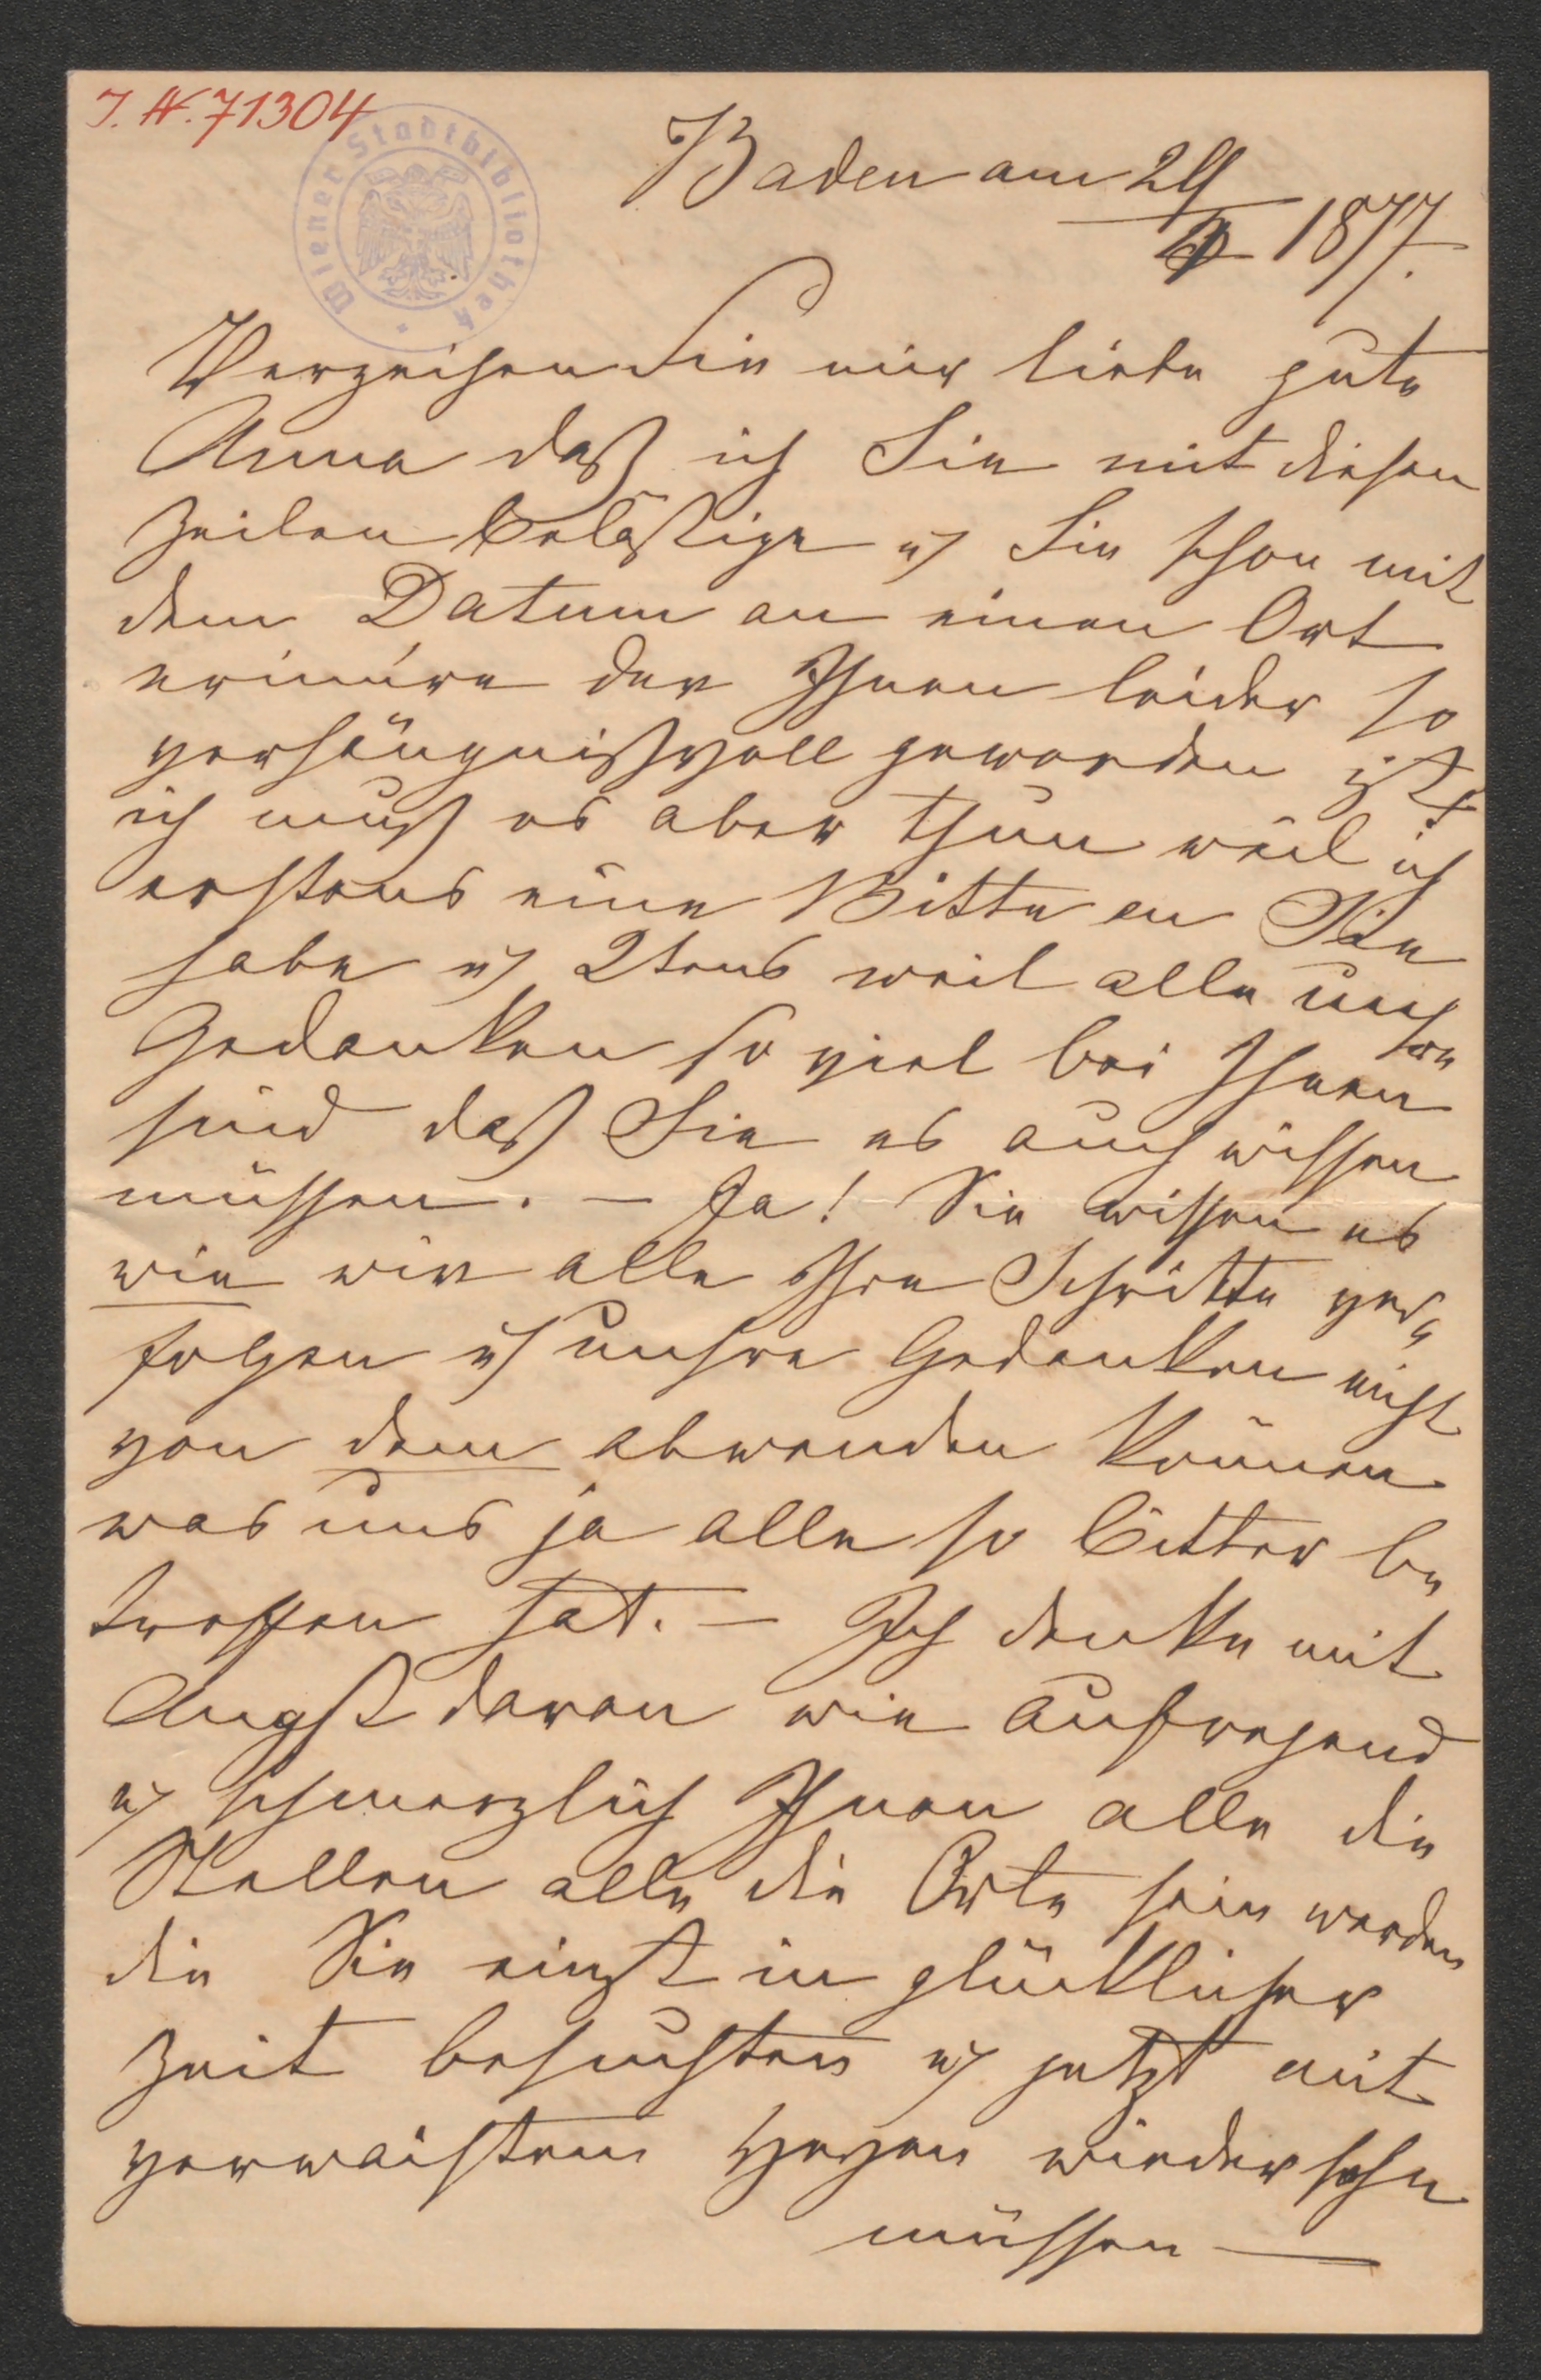 J. N. 71304
Wiener Stadtbibliothek
Baden am 24
1877.
Verzeihen Sie mir liebe gute
Anna daß ich Sie mit diesen
Zeilen belästige u Sie schon mit
dem Datum an einen Ort
erinnre der Ihnen leider so
verhängnißvoll geworden ist
ich muß es aber thun weil ich
erstens eine Bitte an Sie
habe u 2tens weil alle unsre
Gedanken so viel bei Ihnen
sind daß Sie es auch wissen
müssen. – Ja! Sie wissen es
wie wir alle Ihre Schritte ver-
folgen u unsre Gedanken nicht
von dem abwenden können
was uns ja alle so bitter be
troffen hat. – Ich denke mit
Angst daran wie aufregend
u schmerzlich Ihnen alle die
Stellen alle die Orte sein werden
die Sie einst in glücklicher
Zeit besuchten u jetzt mit
verwaistem Herzen wiedersehn
müssen —